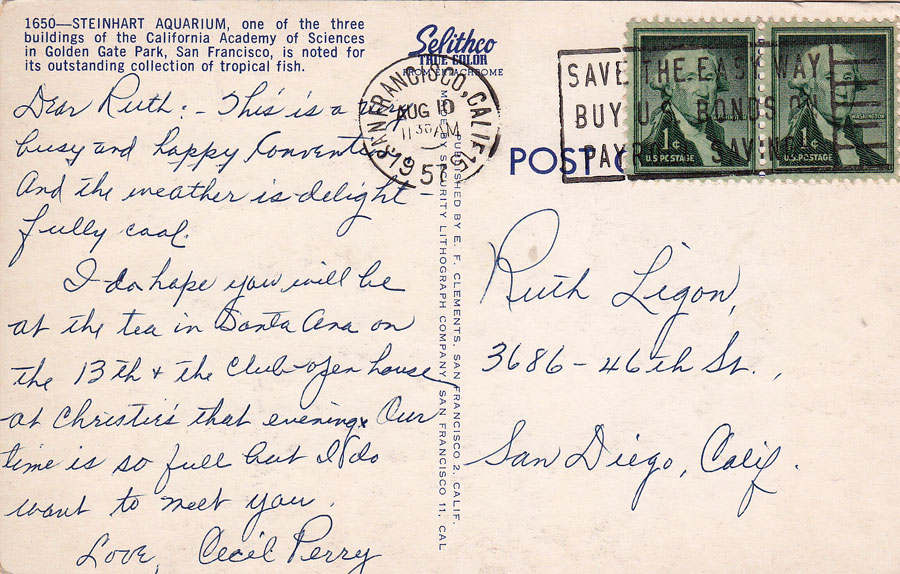 1650—STEINHART AQUARIUM, one of the three
buildings of the California Academy of Sciences
in Golden Gate Park, San Francisco, is noted for
its outstanding collection of tropical fish.
Dear Ruth:- This is a very
busy and happy Convention
And the weather is delight
fully cool.
I do hope you will be
at the tea in Santa Ana on
the 13th + the Club open house
at Christie's that evening. Our
time is so full but I do
want to meet you.
Love, Cecil Perry
Selithco
TRUE COLOR
FROM EKTACHROME
SAN FRANCISCO, CALIF.
AUG 10
11 30 AM
1957
PUBLISHED BY E. F. CLEMENTS, SAN FRANCISCO 2, CALIF.
MADE BY SECURITY LITHOGRAPH COMPANY SAN FRANCISCO 11, CAL
SAVE THE EASY WAY
BUY U.S. BONDS ON
PAYROLL SAVINGS
1¢
U.S. POSTAGE
WASHINGTON
1¢
U.S. POSTAGE
POST
Ruth Ligon,
3686-46th St.,
San Diego, Calif.